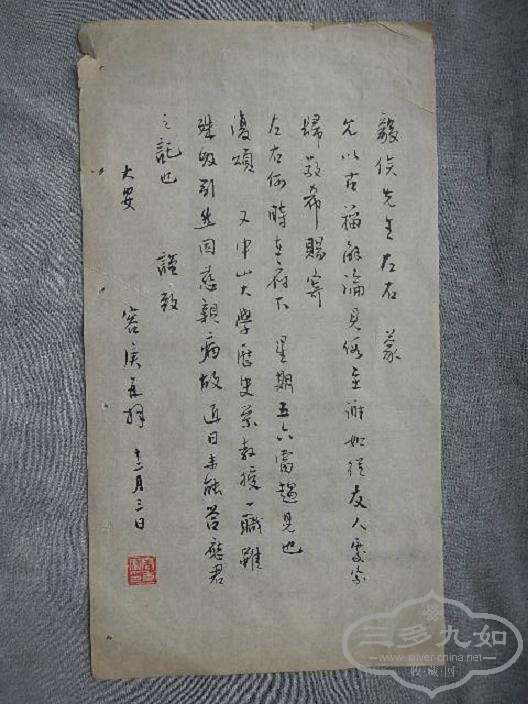 先生左右 蒙
允以古籀餘論見假至謝如從友人處索
歸敬希賜寄
左右何時在府不 星期五六當趨見也
又中山大學歷史系教授一職雖
殊 引 因慈親病故近日未能答應君
之託也 謹致
大安
容庚再拜 十二月三日
三多九如
www.silver-china.net
收·藏·网